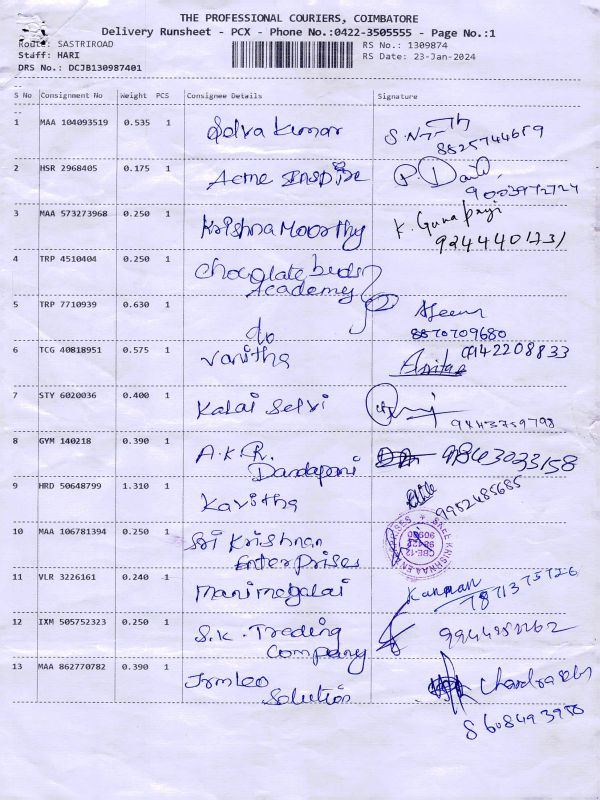 THE PROFESSIONAL COURIERS, COIMBATORE
Delivery Runsheet - PCX - Phone No.:0422-3505555 - Page No.:1
Route: SASTRIROAD RS No.: 1309874
Staff: HARI RS Date: 23-Jan-2024
DRS No.: DCJB130987401
S No Consignment No Weight PCS Consignee Details Signature
1 MAA 104093519 0.535 1 Selva Kumar
8825744659
2 HSR 2968405 0.175 1 Acme Inspire P. David
3 MAA 573273968 0.250 1 Krishna Moorthy K. Gunapayi
9244401731
4 TRP 4510404 0.250 1 Chocolate buds
Academy
5 TRP 7710939 0.630 1 do
8870709680
6 TCG 40818951 0.575 1 Vanitha 9942208833
7 STY 6020036 0.400 1 Kalai Selvi
9443759798
8 GYM 140218 0.390 1 A.K.R. 9843033158
Dandapani
9 HRD 50648799 1.310 1 Kavitha 9952485685
10 MAA 106781394 0.250 1 Sri Krishnan
Enterprises
11 VLR 3226161 0.240 1 Manimegalai Kannan
12 IXM 505752323 0.250 1 S.K. Trading
Company
13 MAA 862770782 0.390 1
Solution